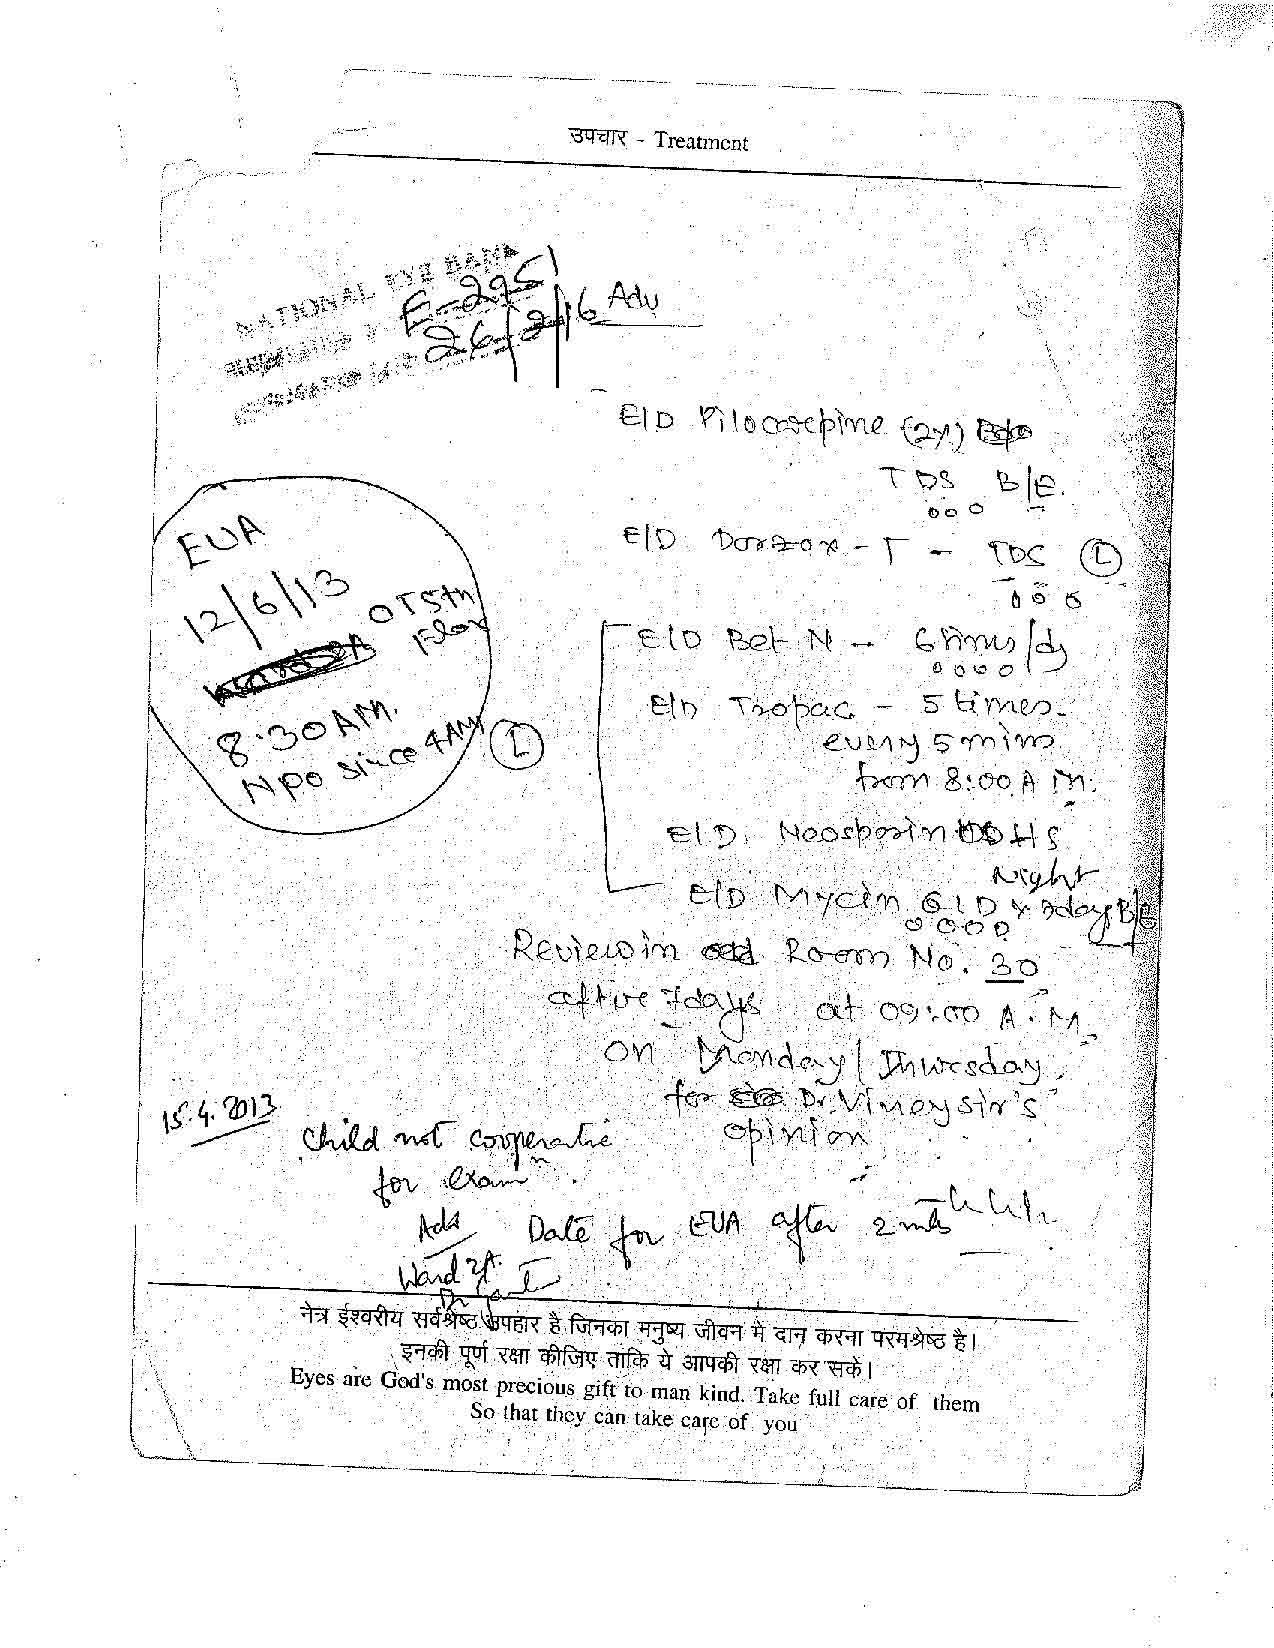 उपचार - Treatment
NATIONAL EYE BANK
E-295
26/2/16
Adv
E/D Pilocarepine (2%)
TDS B/E.
E/D Dorzox - T - TDS L
EUA
12/6/13
OT 5th
Flor
8.30 AM.
NPO since 4AM
L
E/D Bet N - 6 times/dy
E/D Tropac - 5 times
every 5 mins
from 8:00 A.M.
E/D. Neosporin HS
Night
E/D Mycin QID x 7days B/E
Review in Room No. 30
aftire 7days at 09:00 A.M.
on Monday/Thursday,
for Dr. Vinay sir's
opinion
15.4.2013
Child not cooperative
for exam
Adv Date for EUA after 2 mths
Ward 2A.
नेत्र ईश्वरीय सर्वश्रेष्ठ उपहार है जिनका मनुष्य जीवन मे दान करना परमश्रेष्ठ है।
इनकी पूर्ण रक्षा कीजिए ताकि ये आपकी रक्षा कर सकें।
Eyes are God's most precious gift to man kind. Take full care of them
So that they can take care of you